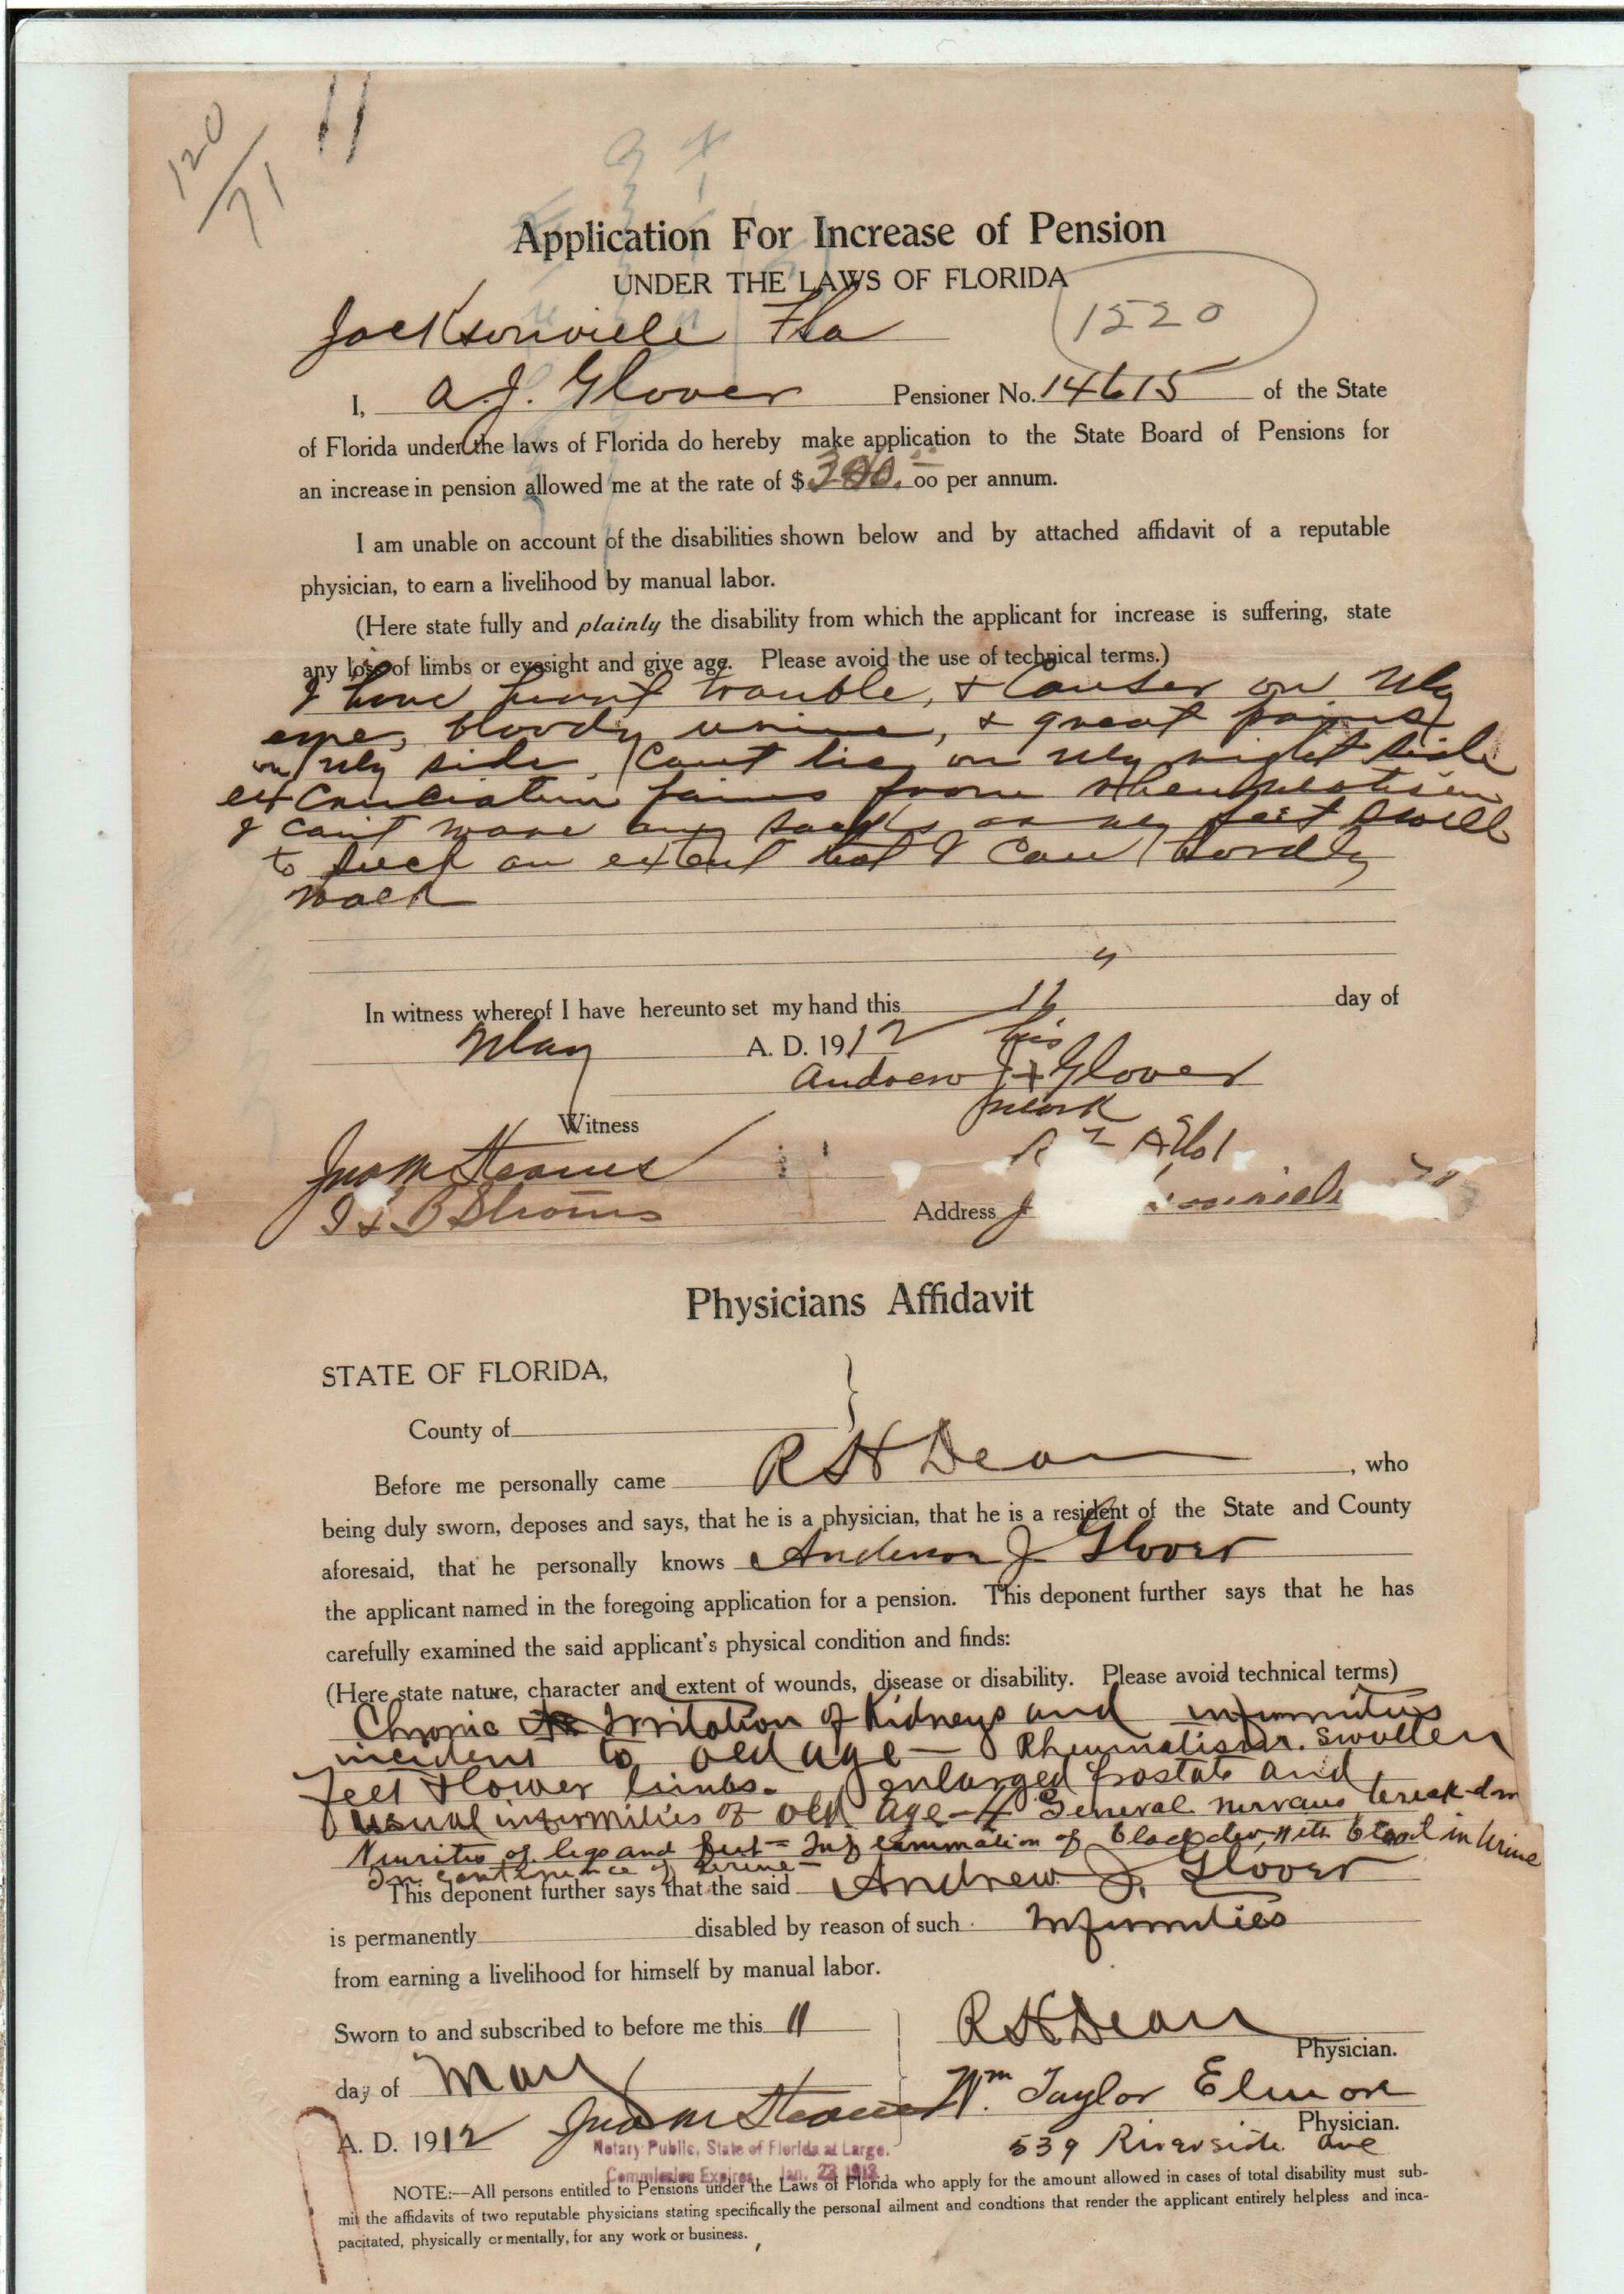 120
71
Application For Increase of Pension
UNDER THE LAWS OF FLORIDA
Jacksonville Fla
1520
I, A. J. Glover Pensioner No. 14615 of the State
of Florida under the laws of Florida do hereby make application to the State Board of Pensions for
an increase in pension allowed me at the rate of $ 00 per annum.
I am unable on account of the disabilities shown below and by attached affidavit of a reputable
physician, to earn a livelihood by manual labor.
(Here state fully and plainly the disability from which the applicant for increase is suffering, state
any loss of limbs or eyesight and give age. Please avoid the use of technical terms.)
I have trouble, + Cancer on My
eye, bloody urine, + great pains
on My side. Cant lie on My right side
excruciatin pains from rheumatism
I cant ware any socks as my feet swell
to such an extent that I can hardly
walk
In witness whereof I have hereunto set my hand this 11 day of
May A. D. 1912
his
Andrew J + Glover
mark
Witness
Jno M Stearns
Address
Physicians Affidavit
STATE OF FLORIDA,
County of
Before me personally came R H Dean, who
being duly sworn, deposes and says, that he is a physician, that he is a resident of the State and County
aforesaid, that he personally knows Anderson J Glover
the applicant named in the foregoing application for a pension. This deponent further says that he has
carefully examined the said applicant's physical condition and finds:
(Here state nature, character and extent of wounds, disease or disability. Please avoid technical terms)
Chronic Irritation of Kidneys and infirmities
incident to old age — Rheumatism. Swollen
Feet + lower limbs. enlarged prostate and
usual infirmities of old age - General nervous break-dn
Neuritis of legs and feet = Inflammation of bladder with blood in Urine
In continence of Urine -
This deponent further says that the said Andrew J. Glover
is permanently disabled by reason of such Infirmities
from earning a livelihood for himself by manual labor.
Sworn to and subscribed to before me this 11
R H Dean
Physician.
day of May
Wm. Taylor Elmore
Physician.
A. D. 1912 Jno M Stearns
539 Riverside Ave
Notary Public, State of Florida at Large.
Commission Expires Jan. 23
NOTE:—All persons entitled to Pensions under the Laws of Florida who apply for the amount allowed in cases of total disability must sub-
mit the affidavits of two reputable physicians stating specifically the personal ailment and condtions that render the applicant entirely helpless and inca-
pacitated, physically or mentally, for any work or business.